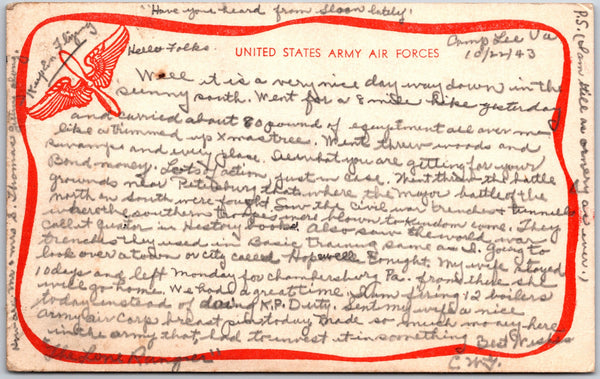 "Have you heard from Sloon lately."
Camp Lee Va
10/22/43
Keep Em Flying
Hello Folks.
UNITED STATES ARMY AIR FORCES
Well it is a very nice day way down in the
sunny south. Went for a 8 mile hike yesterday
and carried about 80 pound of equiptment all over me
like a trimmed up Xmas tree. Went threw woods and
swamps and every place. See what you are getting for your
Bond money. Lots of action, just in case. Went threw the battle
grounds near Petersburg that where the major battle of the
north an south were fought. Saw the civil war trenches & tunnels
where the southern troops were blown to kingdom come. They
call it Crater in History books. Also saw the world war
trenches they used in Basic training same as I. Going to
look over a town or city called Hopewell tonight. My wife stayed
10 days and left Monday for Chambersburg Pa. from there she
will go home. We had a great time. I am firing 12 boilers
today instead of doing K.P. Duty. Sent my wife a nice
army air corps breast pin today. Made so much money here
in the army that had to invest it in something Best Wishes
"The Lone Ranger"
C.W.G.
P.S. (I am still as ornery as ever.)
How are Mr & Mrs S. Thomas getting along.